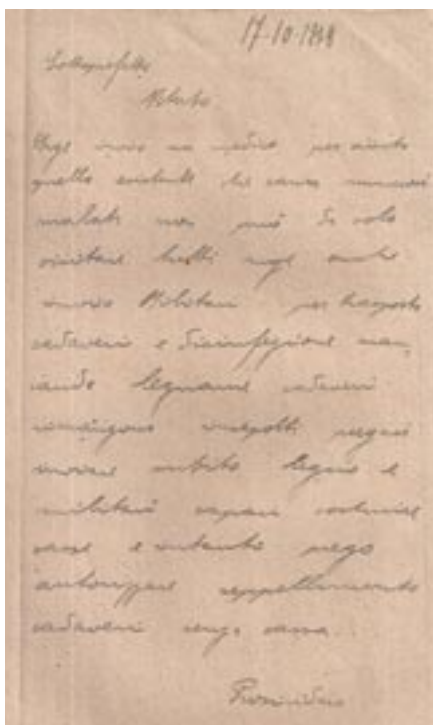 17-10-1918
Sottoprefetto
Urge invio un medico per aiuto
quello esistente che causa numerosi
malati non può da solo
visitare tutti urge anche
invio Militari per trasporto
cadaveri e disinfezione man
cando legname cadaveri
rimangono insepolti prego
inviare subito legno e
militari capaci costruire
casse e intanto prego
autorizzare seppellimento
cadaveri senza cassa.